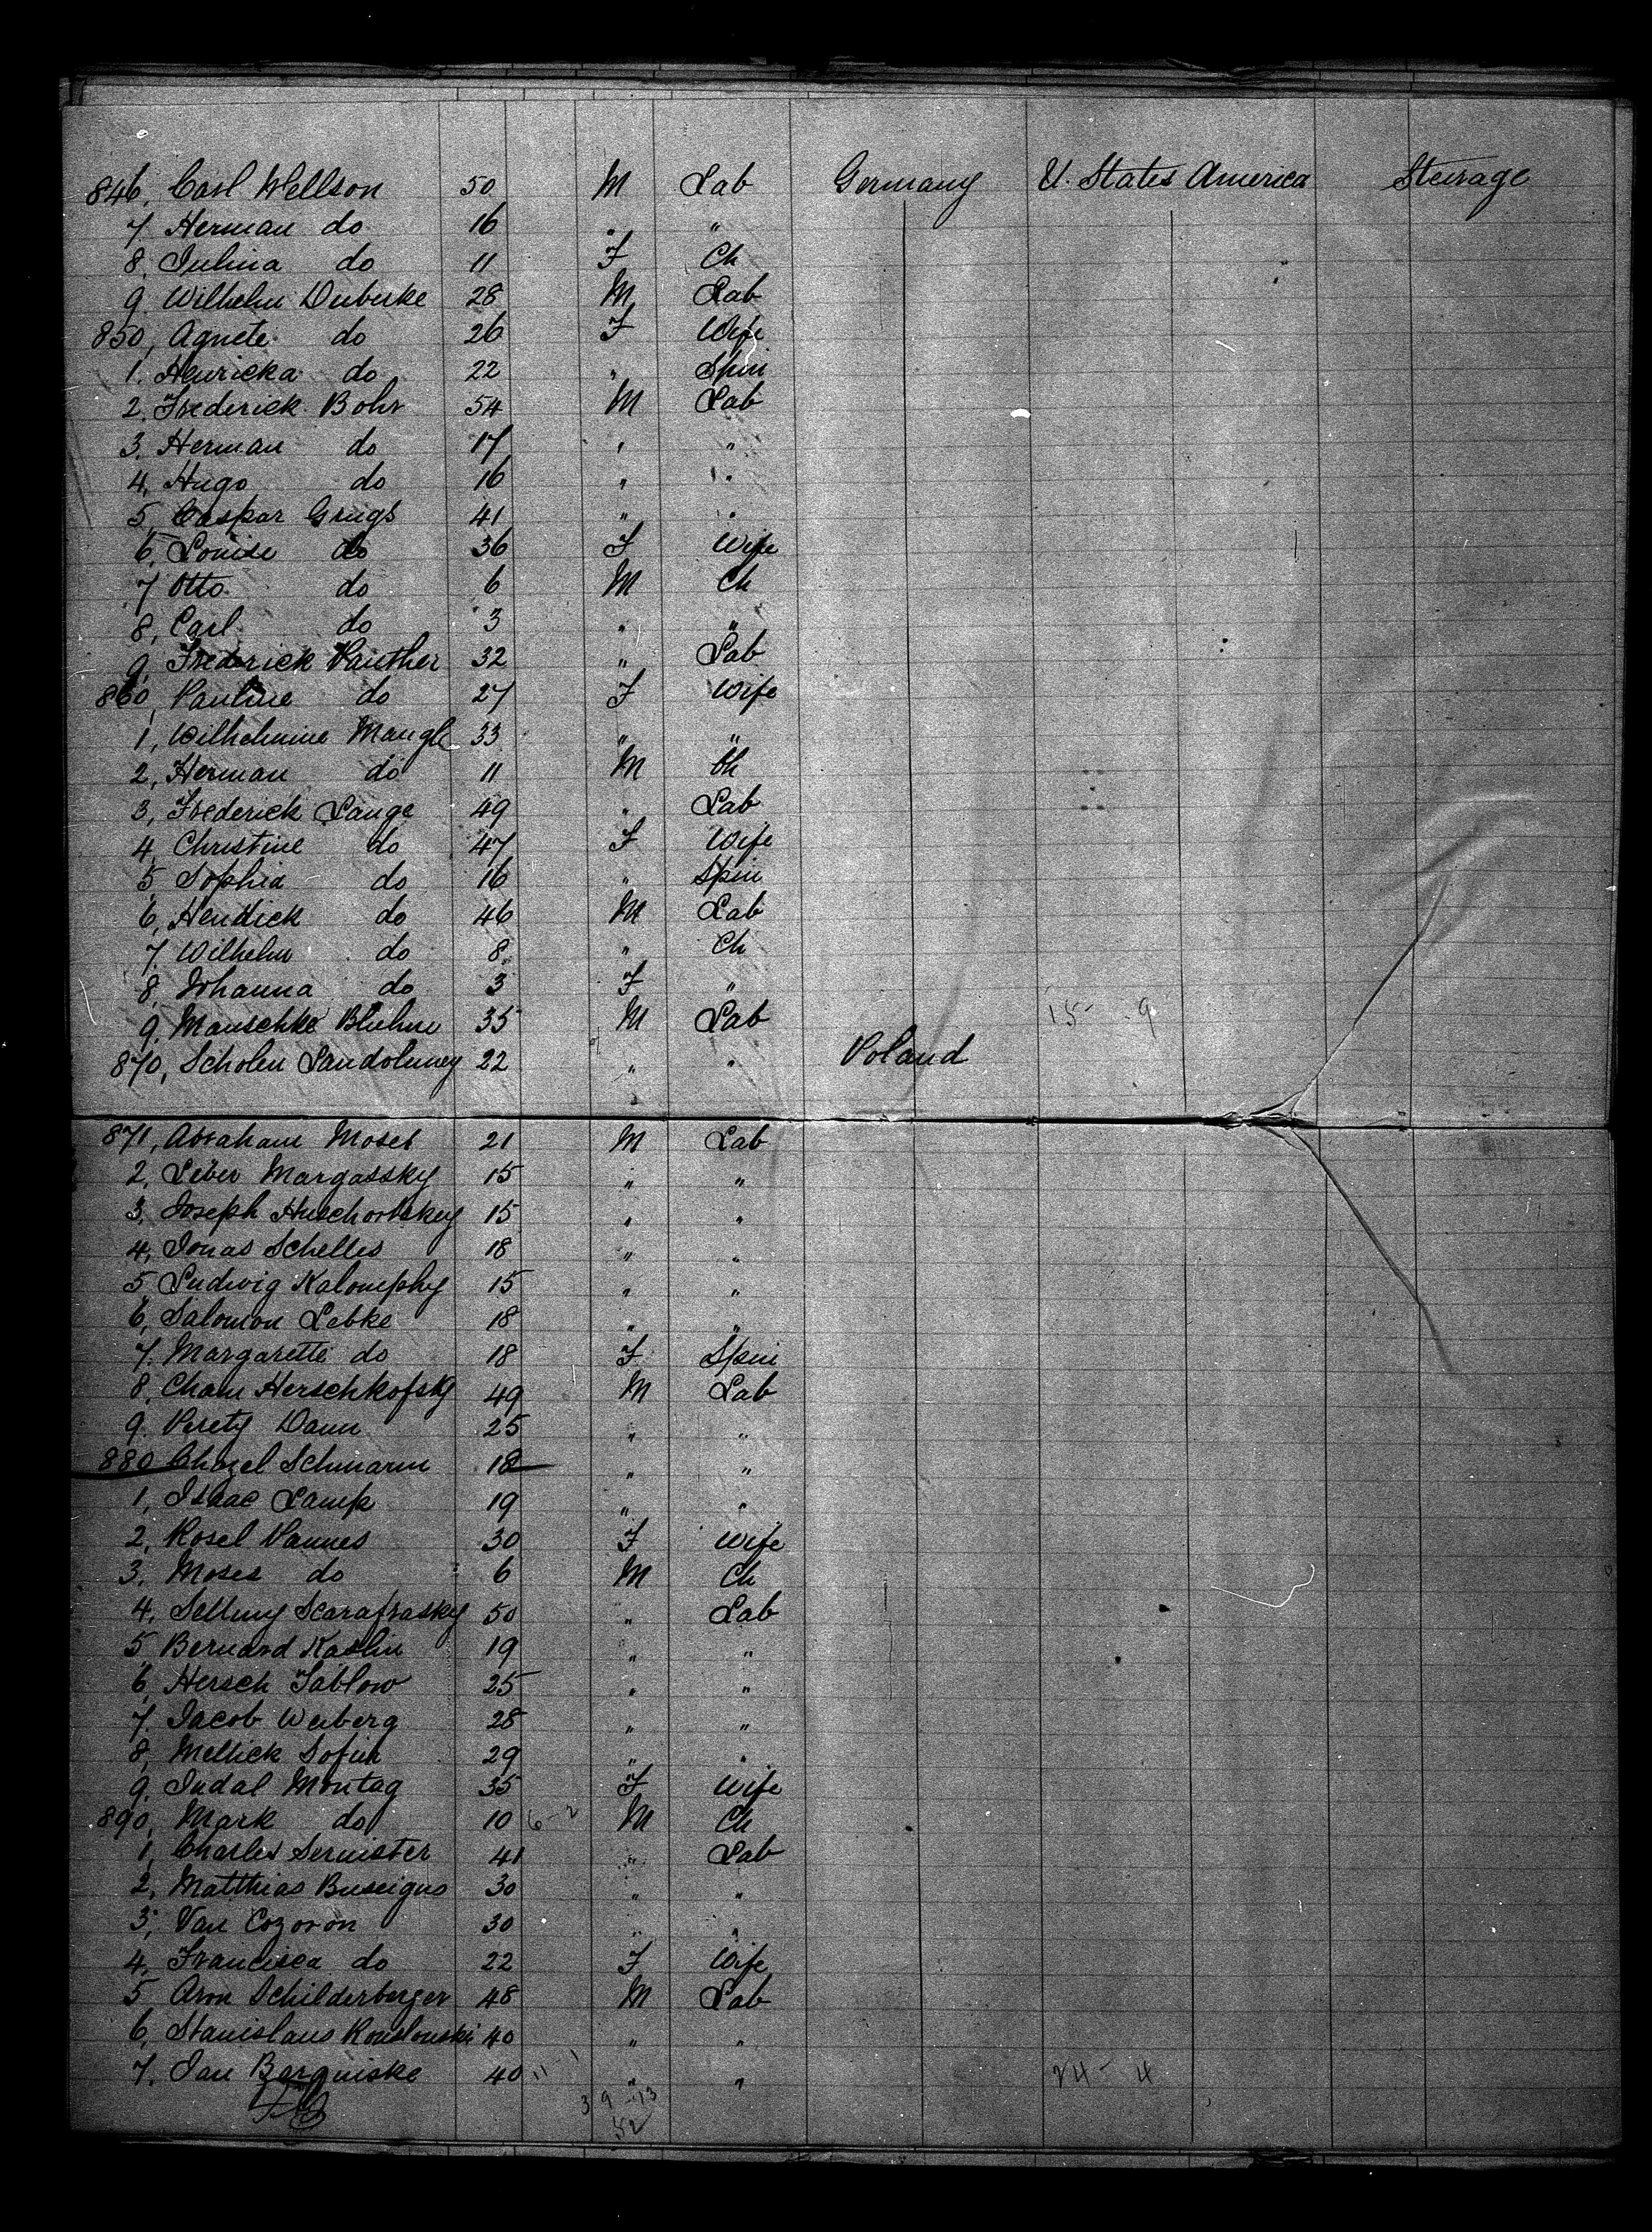 846, Carl Wellson 50 M Lab Germany U. States America Steerage
7, Herman do 16 " "
8, Julina do 11 F Ch
9. Wilhelm Duberke 28 M Lab
850, Agnete do 26 F Wife
1. Henricka do 22 " Spin
2. Frederick Bohr 54 M Lab
3. Herman do 17 " "
4, Hugo do 16 " "
5, Caspar Grugs 41 " "
6, Louise do 36 F Wife
7 Otto do 6 M Ch
8, Carl do 3 " "
9, Frederick Panther 32 " Lab
860, Pauline do 27 F Wife
1, Wilhelmine Mangle 33 " "
2, Herman do 11 M Ch
3, Frederick Lange 49 " Lab
4, Christine do 47 F Wife
5 Sophia do 16 " Spin
6, Hendick do 46 M Lab
7, Wilhelm do 8 " Ch
8, Johanna do 3 F "
9, Mauschke Bluhne 35 M Lab 15 - 9
870, Scholen 22 " " Poland
871, Abraham Moses 21 M Lab
2, Leber Margassky 15 " "
3, Joseph 15 " "
4, Jonas Schelles 18 " "
5, Ludwig Kalomphy 15 " "
6, Salomon Lebke 18 " "
7. Margarette do 18 F Spin
8, Cham Herschkofsky 49 M Lab
9. Perety Dann 25 " "
880 Schmarm 18 " "
1, Isaac Lamp 19 " "
2, Rosel Pannes 30 F Wife
3, Moses do 6 M Ch
4, Scarafrasky 50 " Lab
5, Bernard Kaslin 19 " "
6, Hersch Jablow 25 " "
7. Jacob Weiberg 28 " "
8, Mellick Sofin 29 " "
9. Judal Montag 35 F Wife
890, Mark do 10 6-2 M Ch
1, Charles Sernister 41 " Lab
2, Matthias Buscigus 30 " "
3, Van Cozoron 30 " "
4, Francisca do 22 F Wife
5 Aron Schilderberger 48 M Lab
6, Stanislaus Konslouski 40 " "
7. Jan Barquiske 40 11-1 " " 24 - 4
39 - 13
52